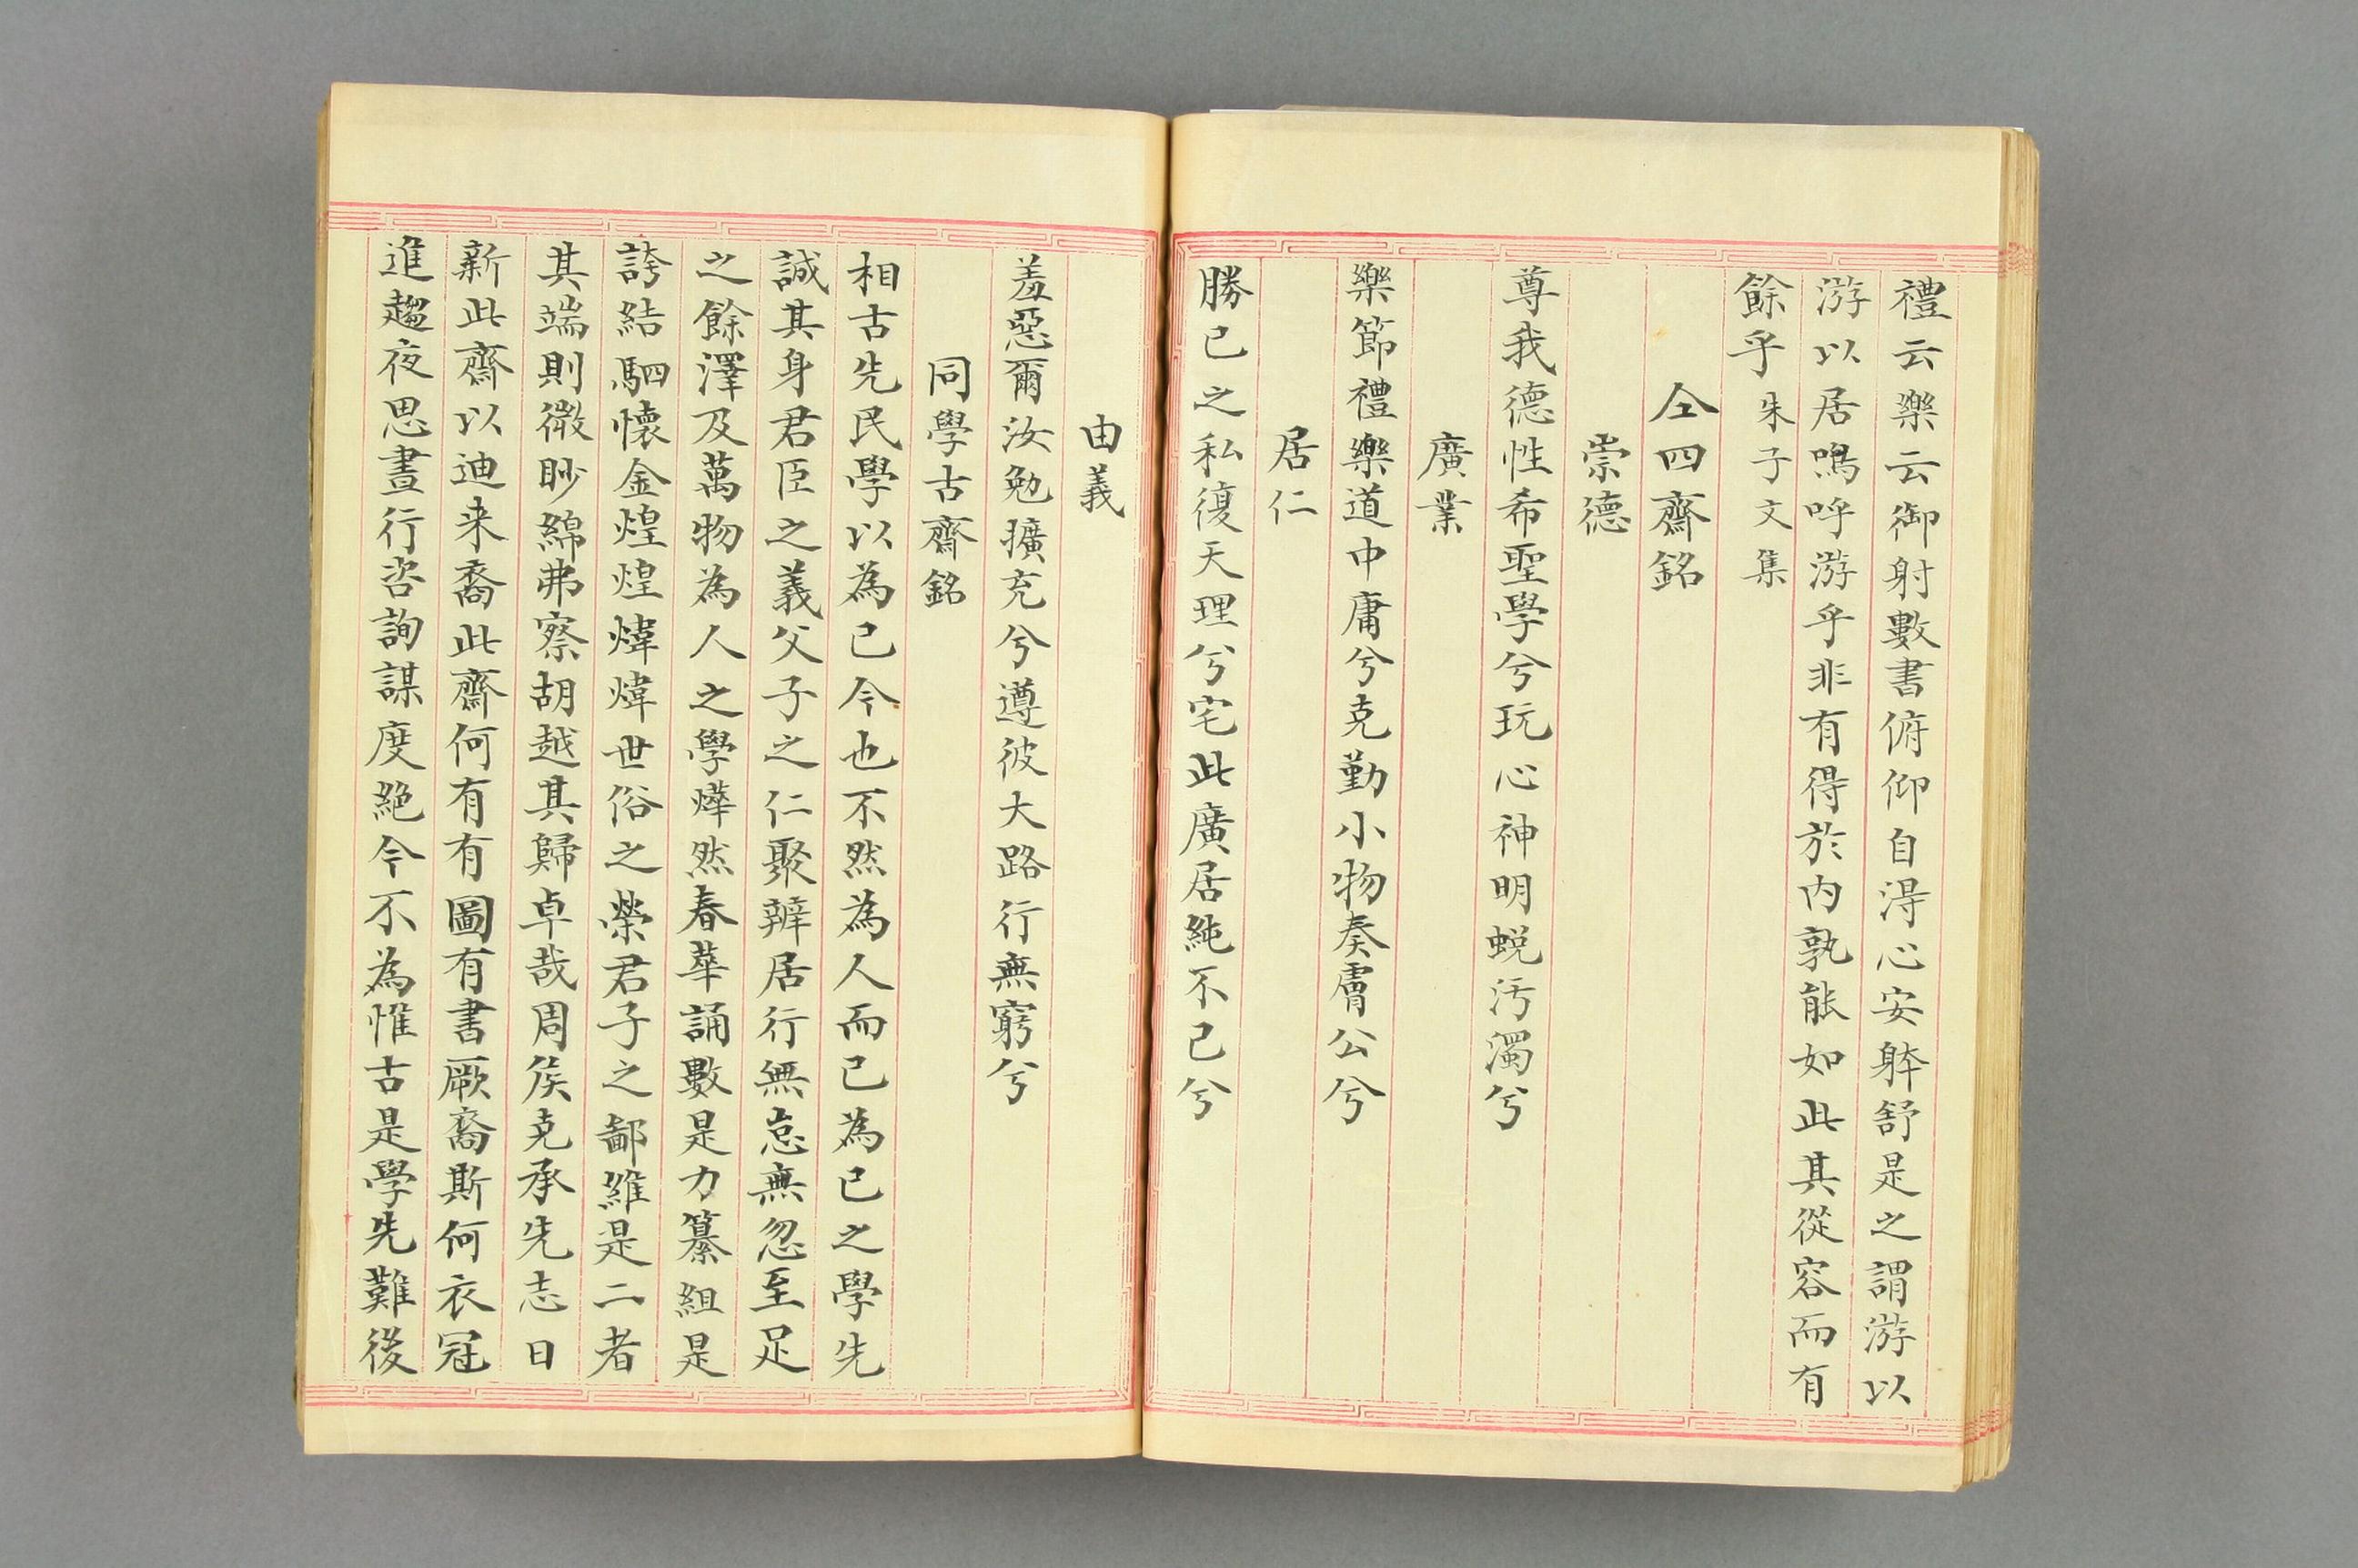 禮云樂云御射數書俯仰自淂心安躰舒是之謂游以
游以居嗚呼游乎非有得於内孰能如此其從容而有
餘乎朱子文集
仝四齋銘
崇德
尊我德性希聖學兮玩心神明蛻污濁兮
廣業
樂節禮樂道中庸兮克勤小物奏膚公兮
居仁
勝己之私復天理兮宅此廣居純不已兮
由義
羞惡爾汝勉擴充兮遵彼大路行無窮兮
同學古齋銘
相古先民學以為己今也不然為人而已為己之學先
誠其身君臣之義父子之仁聚辨居行無怠無忽至足
之餘澤及萬物為人之學燁然春華誦數是力纂組是
誇結駟懷金煌煌煒煒世俗之榮君子之鄙維是二者
其端則微眇綿弗察胡越其歸卓哉周侯克承先志日
新此齋以迪来裔此齋何有有圖有書厥裔斯何衣冠
進趨夜思晝行咨詢謀度絕今不為惟古是學先難後